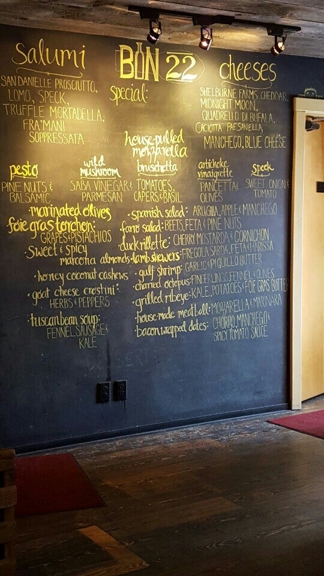 Salumi
BIN 22
cheeses
SAN DANIELLE PROSCIUTTO,
LOMO, SPECK,
TRUFFLE MORTADELLA,
FRA'MANI
SOPPRESSATA
special:
SHELBURNE FARMS CHEDDAR,
MIDNIGHT MOON,
QUADRELLO DI BUFALA,
CACIOTTA PAESANELLA,
MANCHEGO, BLUE CHEESE
house-pulled
mozzarella
pesto
PINE NUTS &
BALSAMIC
wild
mushroom
SABA VINEGAR &
PARMESAN
bruschetta
TOMATOES,
CAPERS & BASIL
artichoke
vinaigrette
PANCETTA &
OLIVES
speck
SWEET ONION &
TOMATO
marinated olives
foie gras torchon:
GRAPES & PISTACHIOS
sweet & spicy
marcona almonds
honey coconut cashews
goat cheese crostini:
HERBS & PEPPERS
tuscan bean soup:
FENNEL, SAUSAGE &
KALE
spanish salad: ARUGULA, APPLE & MANCHEGO
farro salad: BEETS, FETA & PINE NUTS
duck rillette: CHERRY MOSTARDA & CORNICHON
lamb skewers: FREGOLA SARDA, FETA & HARISSA
gulf shrimp: GARLIC & PIQUILLO BUTTER
charred octopus: FINGERLINGS, FENNEL & OLIVES
grilled ribeye: KALE, POTATOES & FOIE GRAS BUTTER
house made meatball: MOZZARELLA & MARINARA
bacon wrapped dates: CHORIZO, MANCHEGO &
SPICY TOMATO SAUCE